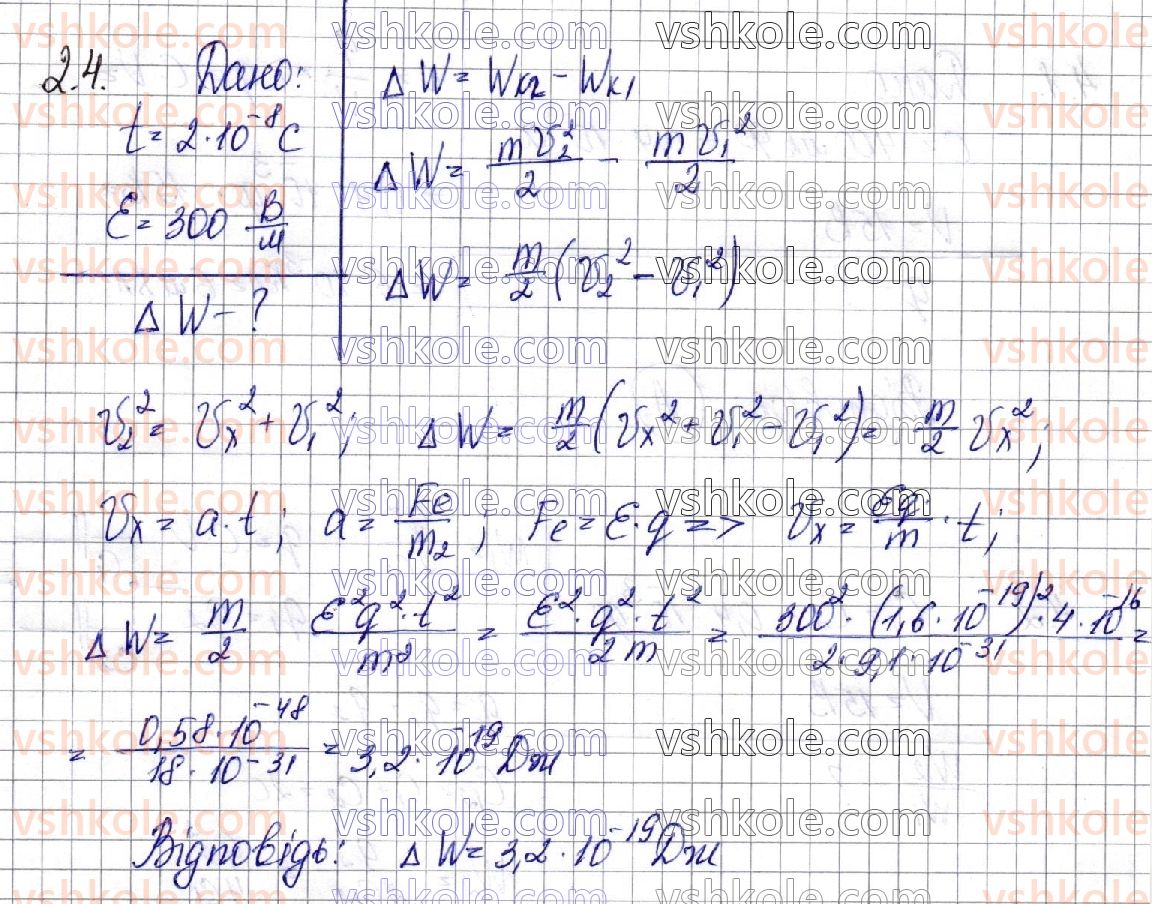 2.4. Дано:
t = 2·10⁻⁸ с
ℰ = 300 В/м
ΔW - ?
ΔW = Wк₂ - Wк₁
ΔW = mv₂²/2 - mv₁²/2
ΔW = m/2 (v₂² - v₁²)
v₂² = vₓ² + v₁²; ΔW = m/2 (vₓ² + v₁² - v₁²) = m/2 vₓ²;
vₓ = a·t; a = Fе/m₂; Fе = ℰ·q => vₓ = ℰq/m · t;
ΔW = m/2 ℰ²q²·t²/m² = ℰ²·q²·t²/2m = 300²·(1,6·10⁻¹⁹)²·4·10⁻¹⁶/2·9,1·10⁻³¹ =
= 0,58·10⁻⁴⁸/18·10⁻³¹ = 3,2·10⁻¹⁹ Дж
Відповідь: ΔW = 3,2·10⁻¹⁹ Дж
vshkole.com